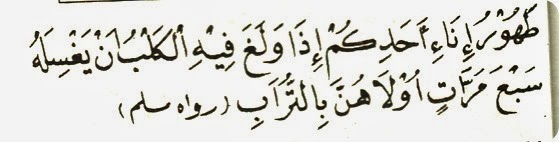 طَهُوْرُ إِنَاءِ أَحَدِكُمْ إِذَا وَلَغَ فِيْهِ الْكَلْبُ أَنْ يَغْسِلَهُ
سَبْعَ مَرَّاتٍ أُوْلَاهُنَّ بِالتُّرَابِ (رواه مسلم)